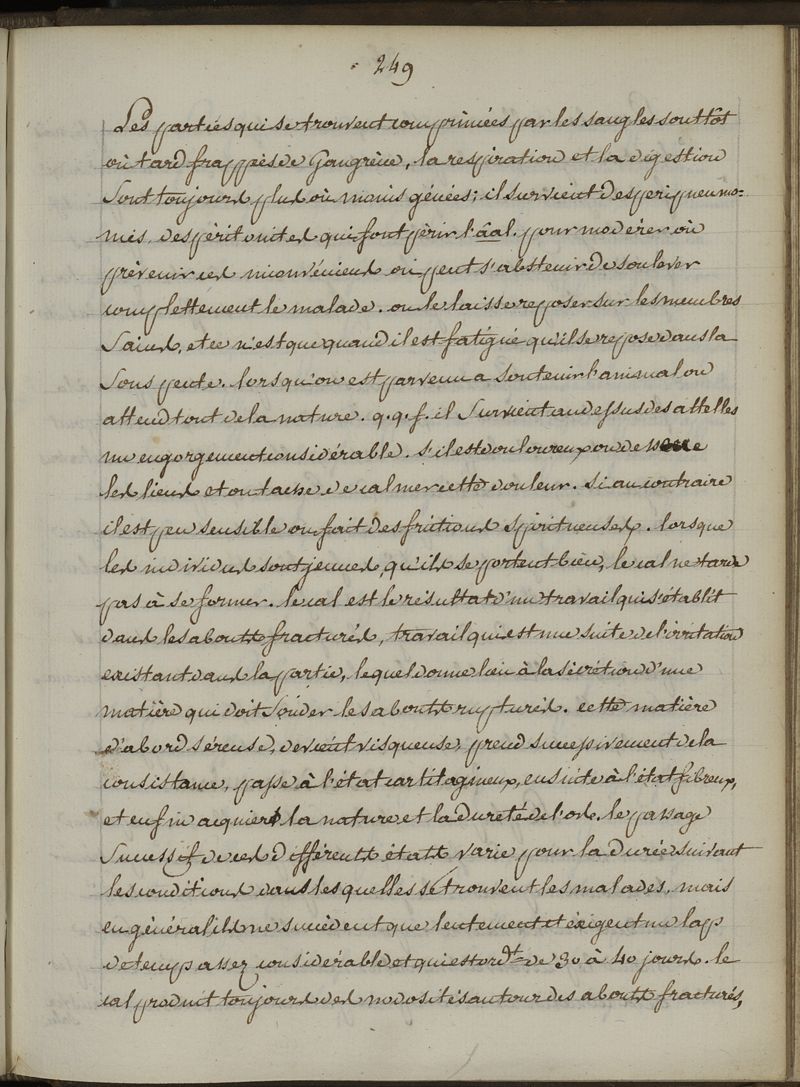 249
Les parties qui se trouvent comprimées par les sangles sont tôt
où tard frappés de Gangrène, la respiration et la digestion
Sont toujours plus où moins génées; il survient des peripneumo=
nies, des péritonites qui font périr l'âal. pour modérer où
prévenir ces inconvéniens on peut s'abstenir de soulever
complettement le malade. on le laisse reposer sur les membres
Sains, et ce n'est que quand il est fatigué qu'il se repose dans la
Souspente. lorsqu'on est parvenu a soutenir l'animal on
attend tout de la nature. q.q.f. il Survient au dessus des attelles
un engorgement considérable. s'il est douloureux on desserre
les liens et on tache de calmer cette douleur. Si au contraire
il est peu sensible on fait des frictions spiritueuses. lorsque
les individus sont jeunes, qu'ils se portent bien, le cal ne tarde
pas à se former. le cal est le résultat d'un travail qui s'établit
dans les aboutts fracturés, travail qui est une suite de l'irritation
existant dans la partie, lequel donne lieu à la sécrétion d'une
matière qui doit Souder les aboutts rupturés. cette matière
d'abord séreuse, devient visqueuse, prend successivement de la
consistance, passe à l'état cartilagineux, ensuite à l'état fibreux,
et enfin acquiert la nature et la dureté de l'os. le passage
Successif de ces différentts étatts varie pour la durée suivant
les conditions dans lesquelles se trouvent les malades, mais
en général ils ne succèdent que lentement et éxigent un laps
de temps assez considérable et qui est ord.t de 30 à 40 jours. le
cal produit toujours des nodosités autour des aboutts fracturés,